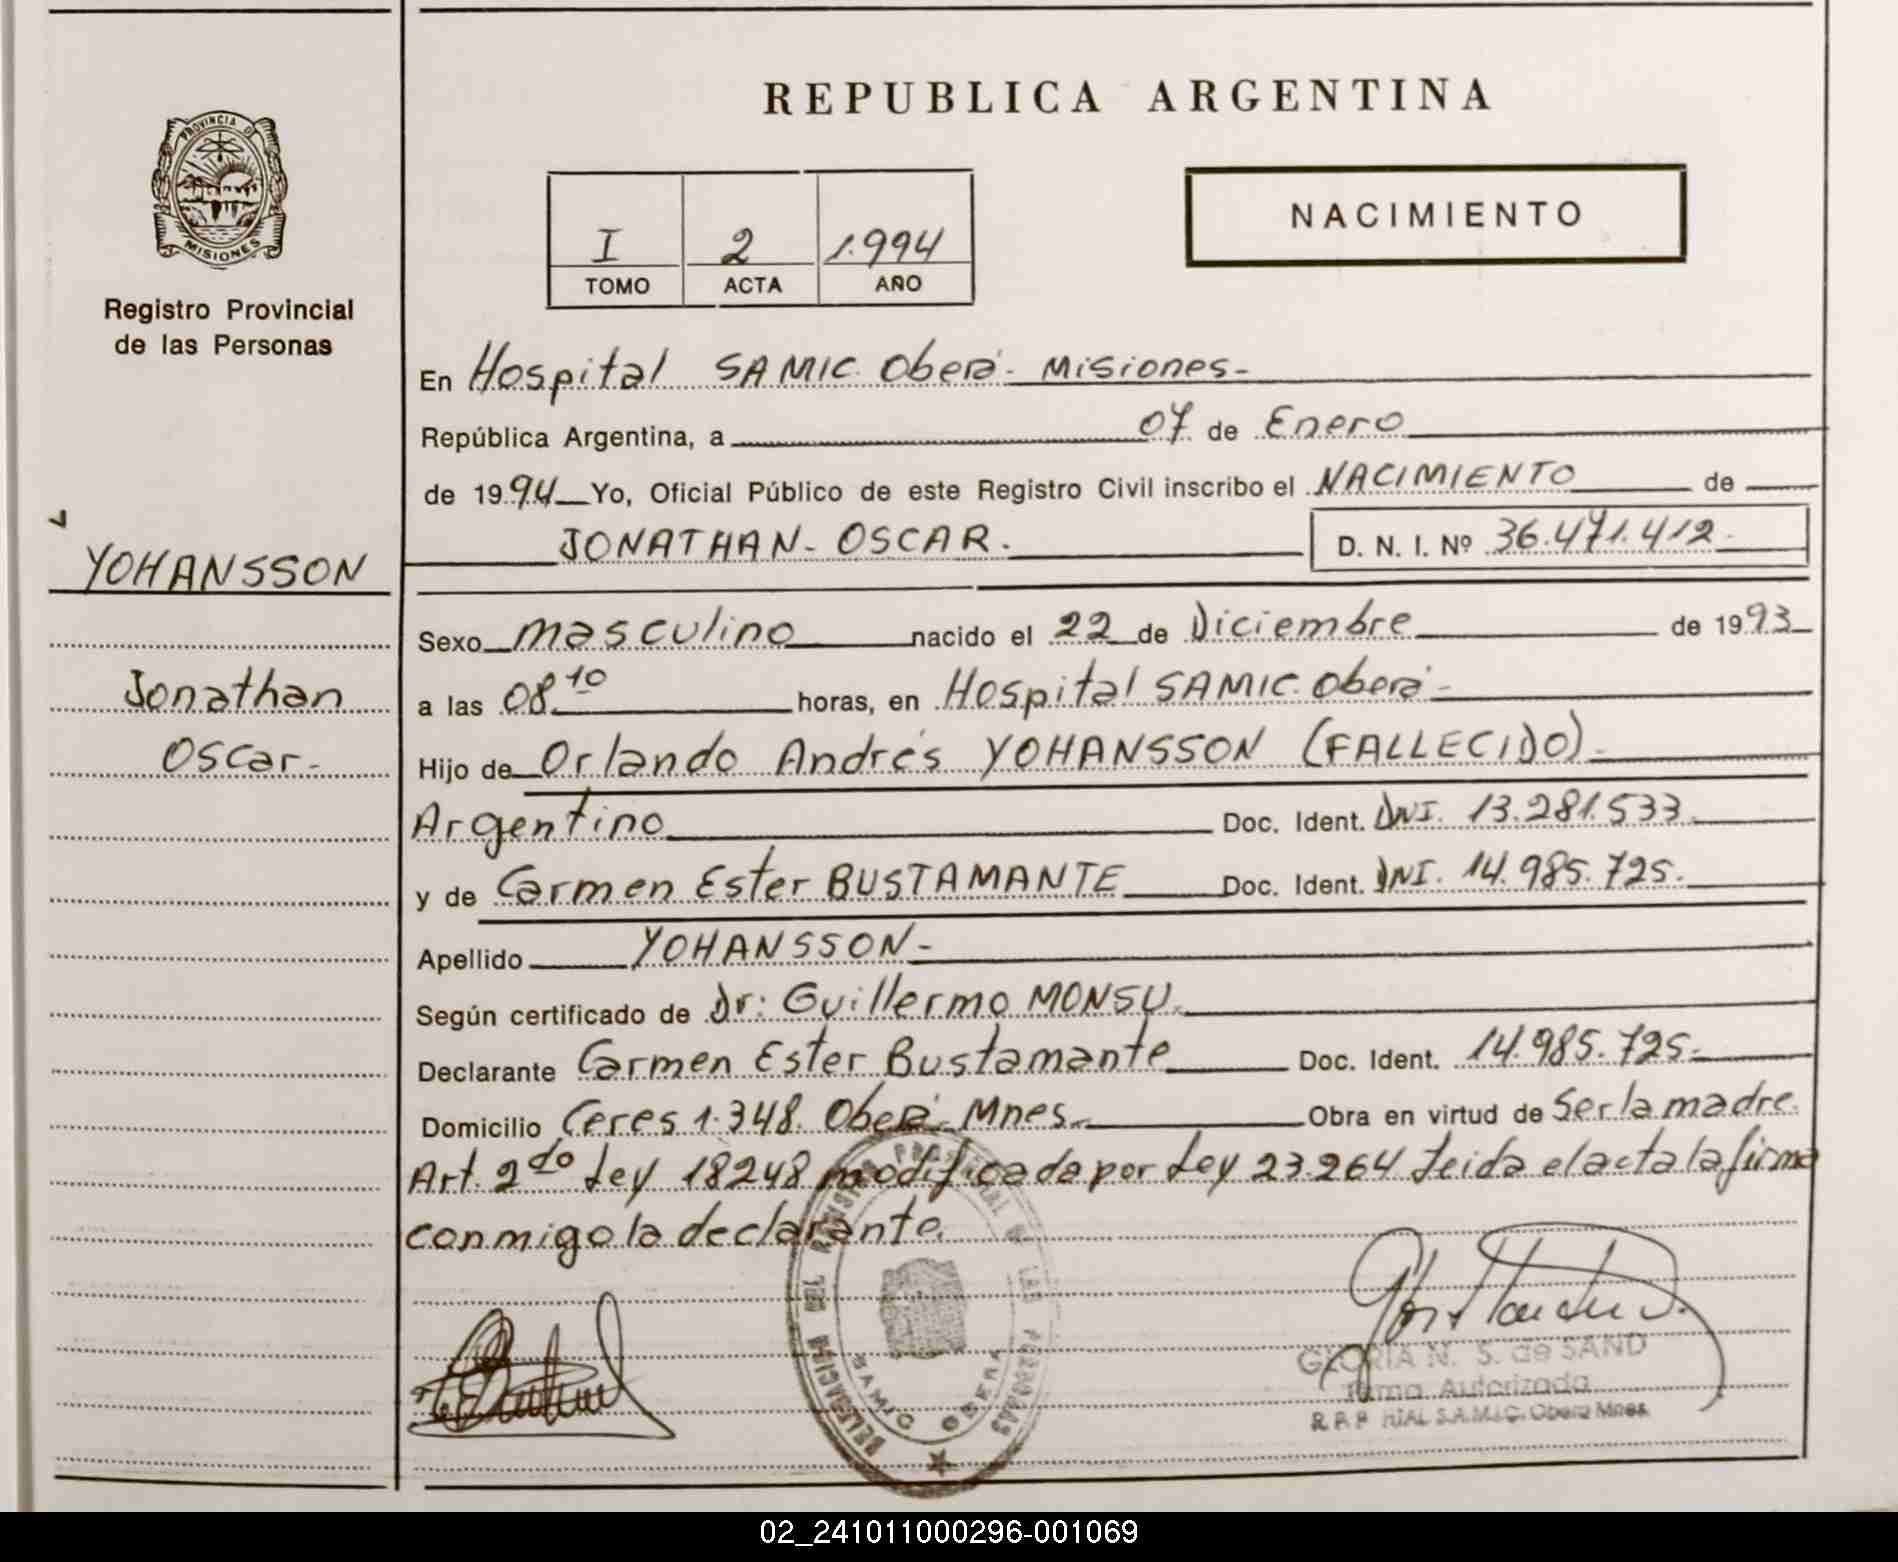 REPUBLICA ARGENTINA
PROVINCIA D
MISIONES
Registro Provincial
de las Personas
I 2 1.994
TOMO ACTA AÑO
NACIMIENTO
En Hospital SAMIC. Oberá. Misiones-
República Argentina, a 07 de Enero
de 1994 Yo, Oficial Público de este Registro Civil inscribo el NACIMIENTO de
JONATHAN- OSCAR. D. N. I. Nº 36.471.412-
YOHANSSON
Jonathan
Oscar-
Sexo masculino nacido el 22 de Diciembre de 1993
a las 08.10 horas, en Hospital SAMIC. Oberá-
Hijo de Orlando Andrés YOHANSSON (FALLECIDO).
Argentino Doc. Ident. DNI. 13.281.533.
y de Carmen Ester BUSTAMANTE Doc. Ident. DNI. 14.985.725.
Apellido YOHANSSON-
Según certificado de Dr: Guillermo MONSU.
Declarante Carmen Ester Bustamante Doc. Ident. 14.985.725-
Domicilio Ceres 1.348. Oberá-Mnes. Obra en virtud de Ser la madre.
Art. 2do Ley 18248 modificada por Ley 23.264 Leida el acta la firma
conmigo la declarante.
REGISTRO PROVINCIAL DE LAS PERSONAS
DELEGACION
SAMIC OBERA
GLORIA N. S. de SAND
Firma Autorizada
R.P.P. HTAL S.A.M.I.C. Oberá Mnes.
02_241011000296-001069